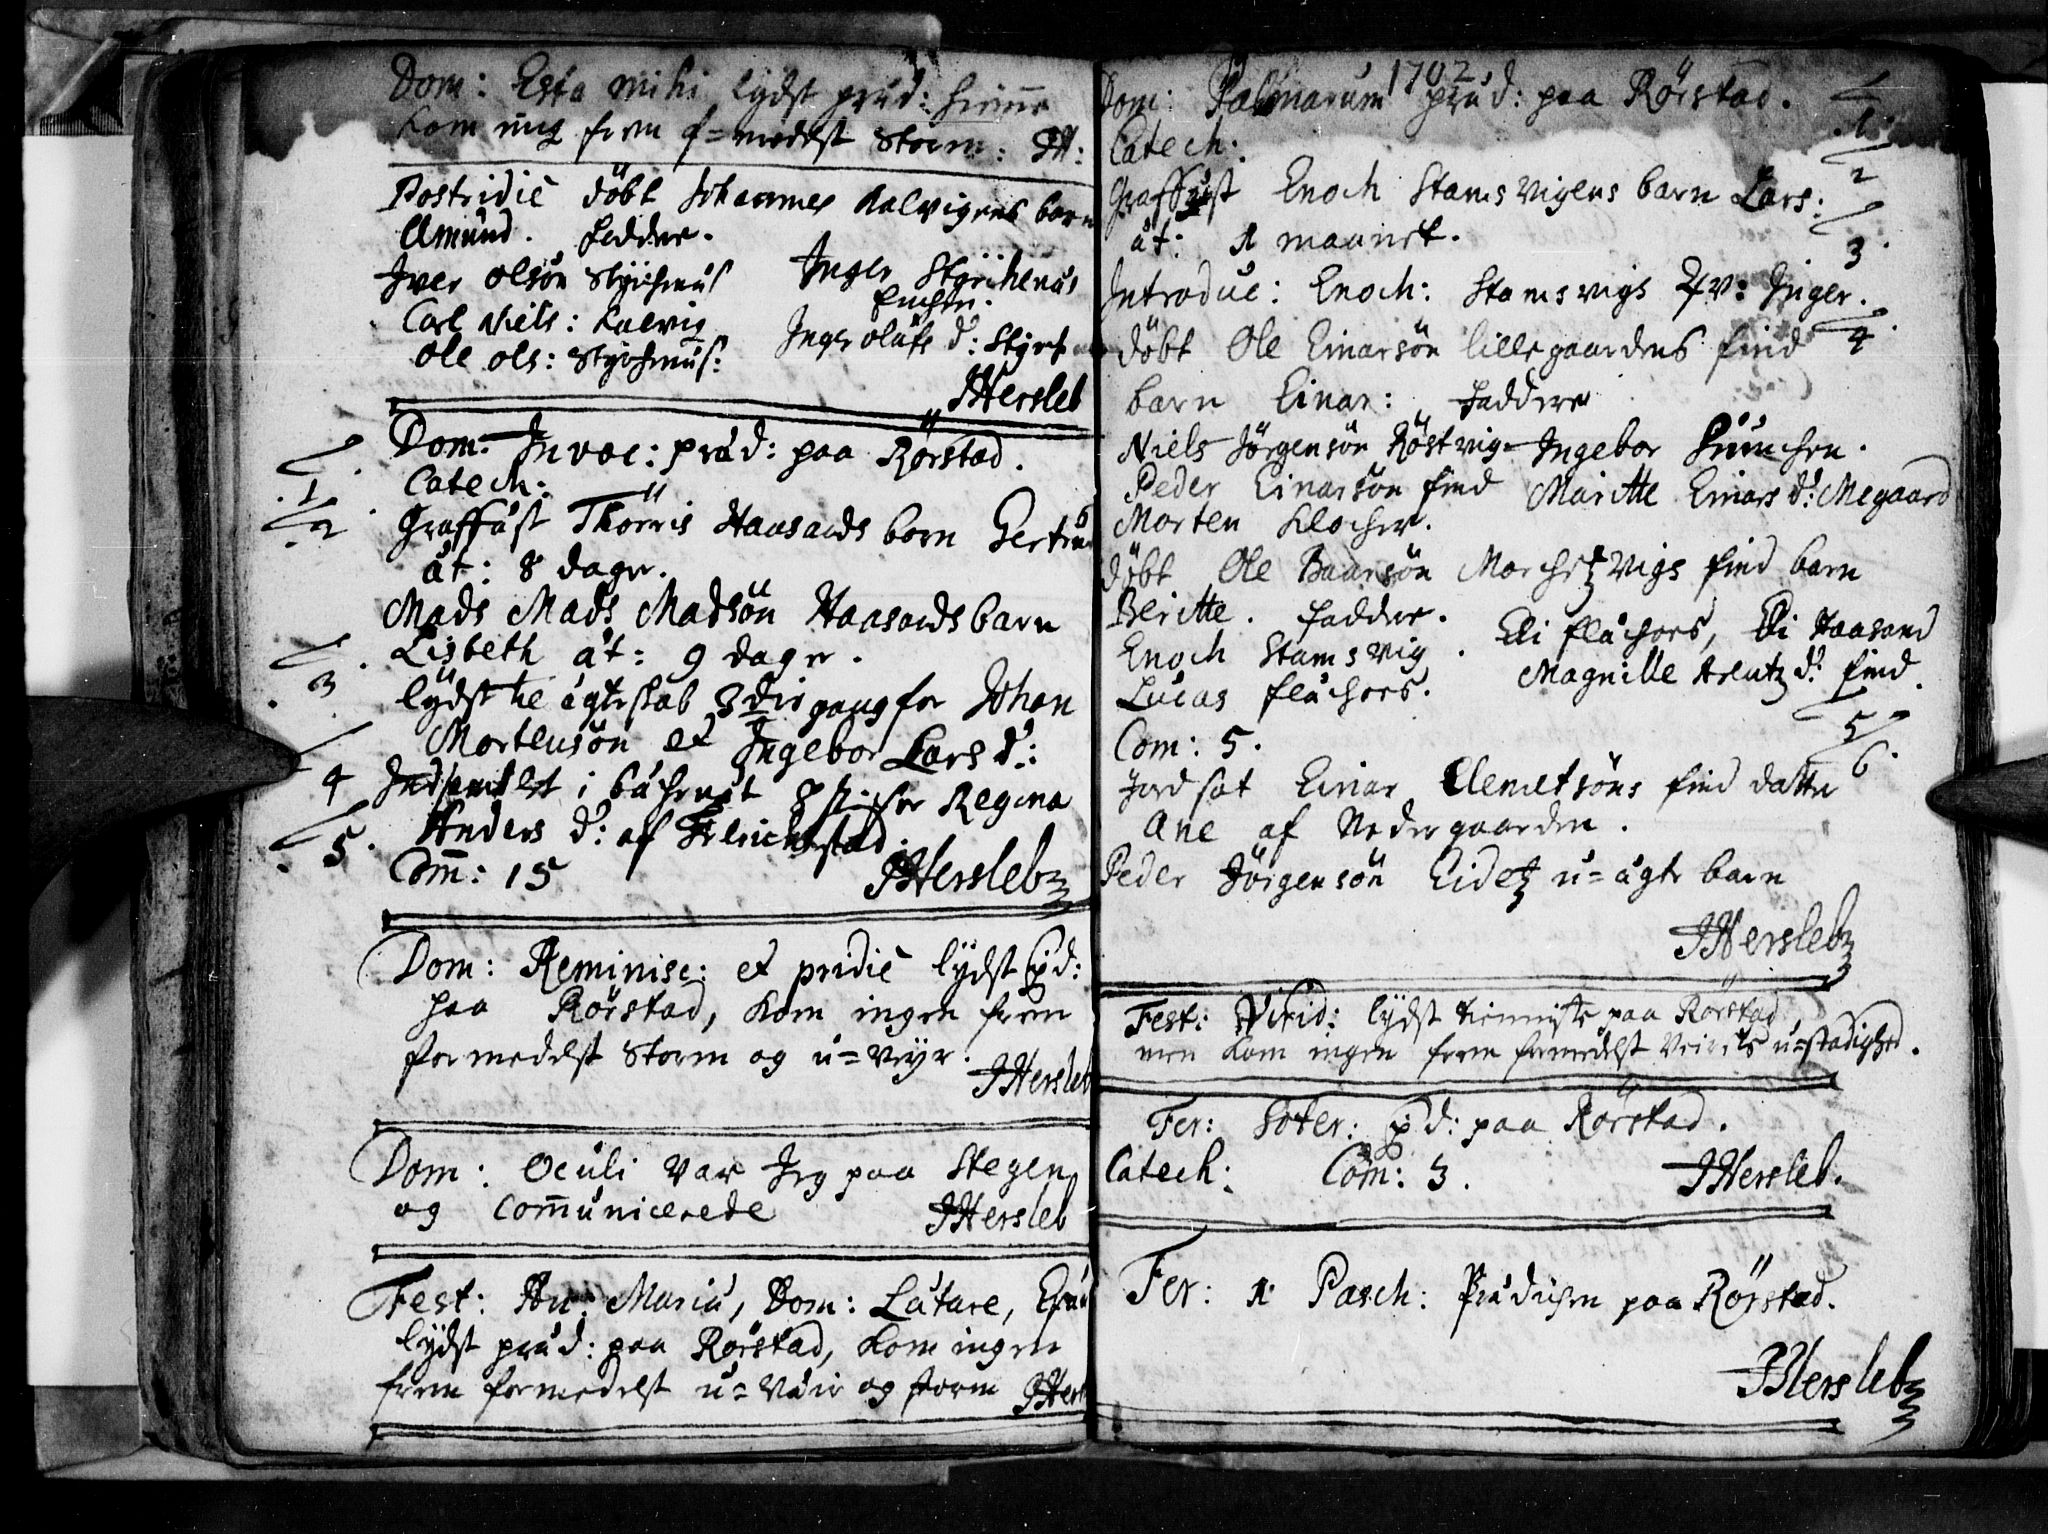 Dom: Esto mihi lydst præd: hiemme
kom ing frem f=medelst Storm: JH:
Postridie döbt Johannes Kalvigens barn
Amund. Faddre.
Iver Olsön Styrchnus
Inger Styrchenus
Carl Niels: Kalvig
Ole Ols: Styrchnus:
Inger Olufs d: Styrk
JHersleb
Dom: Invoc: præd: paa Rörstad.
1. Catech:
2. Graffæst Thörris Haasands barn Gertrud
æt: 8 dage.
Mads Mads Madsön Haasands barn
Lisbeth æt: 9 dage.
3. lydst til ægteskab 3die gang for Johan
Mortensön et Ingebor Lars d:
4 i for Regina
5. Anders d: af
Com̄: 15
JHersleb
Dom: Reminisc: et pridie lydst pd:
paa Rörstad, kom ingen frem
formedelst Storm og u=veyr.
JHersleb
Dom: Oculi var Jeg paa Stegen
og Com̄unicerede
JHersleb
Fest: An: Mariæ, Dom: Lætare,
lydst præd: paa Rörstad, kom ingen
frem formedelst u=væir og storm JHers
1702
Dom: Palmarum præd: paa Rörstad.
1. Catech:
2 Graffæst Enoch Stamsvigens barn Lars:
æt: 1 maanet.
3. Introduc: Enoch: Stamsvigs Qv: Inger.
4. döbt Ole Einarsön lillegaardens find
barn Einar: Faddere
Niels Jörgensön Röstvig= Ingebor
Peder Einarsön find Maritte Einars d: Megaard
Morten Klocher.
döbt Ole Baarsön Morchetzvigs find barn
Beritte. Faddre.
Enoch Stamsvig. Eli Flæchoes, Eli Haasand
Lucas Flæchoes. Magnille Arentz d: find.
5 Com: 5.
6. Jordsat Einar Clemetsöns find datter
Ane af Nedergaarden.
Peder Jörgensön Eidetz u=ægte barn
JHersleb
Fest: Virid: lydst tienniste paa Rörstad
men kom ingen frem formedelst Veirets u=stadighed.
Fer: Soter: pd: paa Rörstad.
Catech: Com̄: 3. JHersleb.
Fer: 1 Pasch: Prædichen paa Rörstad.
JHersleb